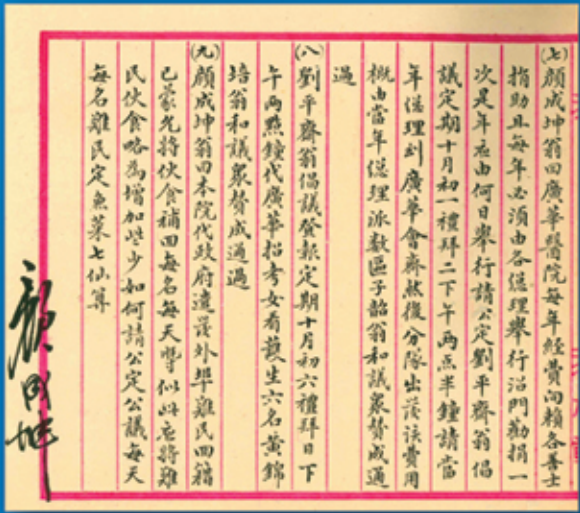 (七)顏成坤翁曰廣華醫院每年經費尚賴各善士
捐助且每年必須由各總理舉行沿門勸捐一
次是年应由何日舉行請公定劉平齋翁倡
議定期十月初一禮拜二下午兩点半鐘請當
年總理到廣華會齊然後分隊出發該費用
概由當年總理派數區子韶翁和議衆贊成通
過
(八)劉平齋翁倡議登報定期十月初六禮拜日下
午兩點鐘代廣華招考女看護生六名黃錦
培翁和議衆贊成通過
(九)顏成坤翁曰本院代政府遣發外埠難民回籍
已蒙允將伙食補回每名每天似此应將難
民伙食略為增加些少如何請公定公議每天
每名難民定魚菜七仙算
顏成坤